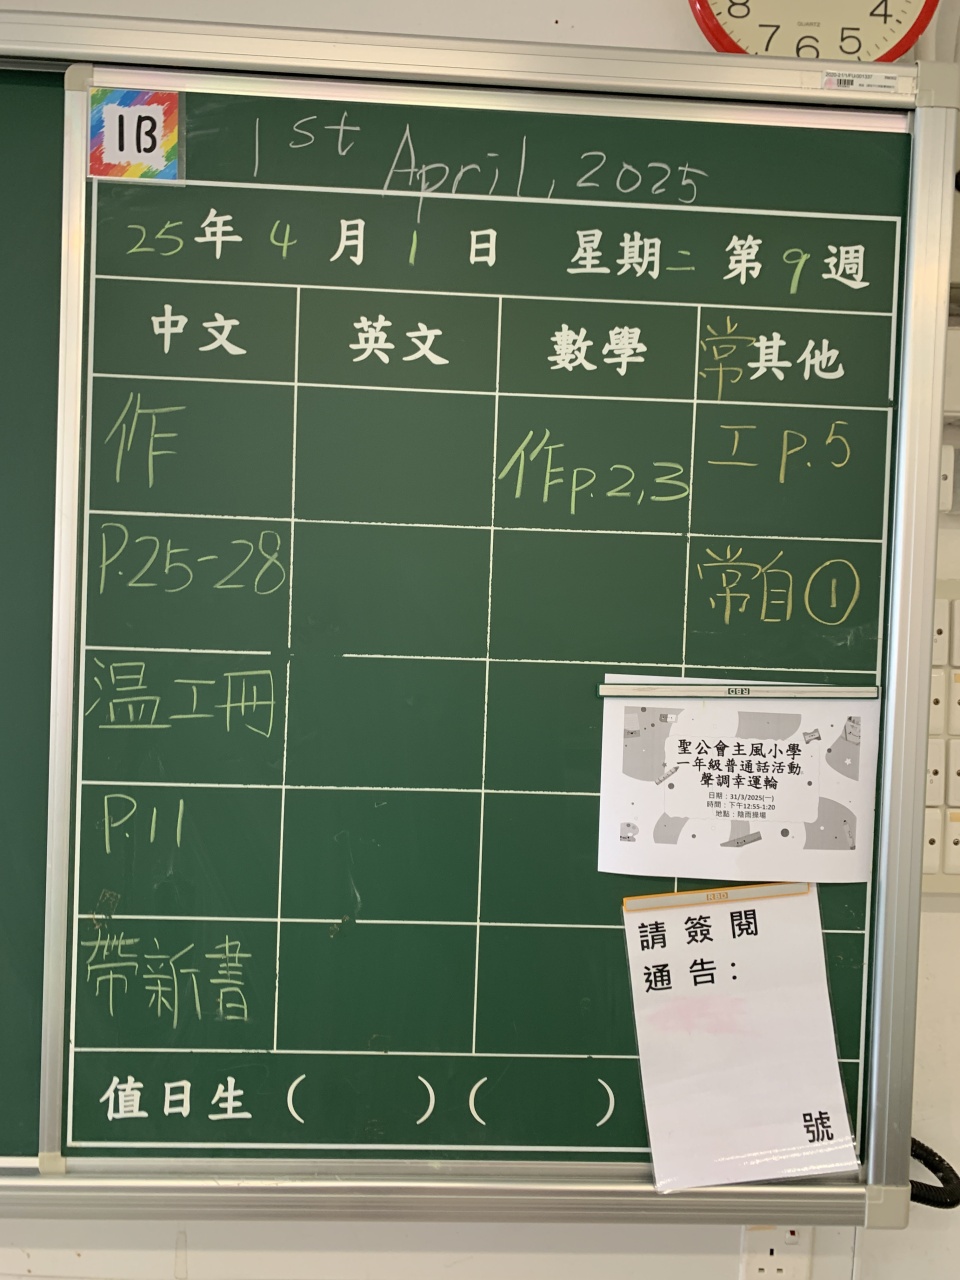 8 7 6 5 4
QUARTZ
1B
1st April, 2025
25年4月1日 星期二 第9週
中文 英文 數學 常其他
作 作p.2,3 工p.5
P.25-28 常自①
溫工冊
P.11
帶新書
RBD
聖公會主風小學
一年級普通話活動
聲調幸運輪
日期：31/3/2025(一)
時間：下午12:55-1:20
地點：陰雨操場
請簽閱
通告：
號
值日生（ ）（ ）